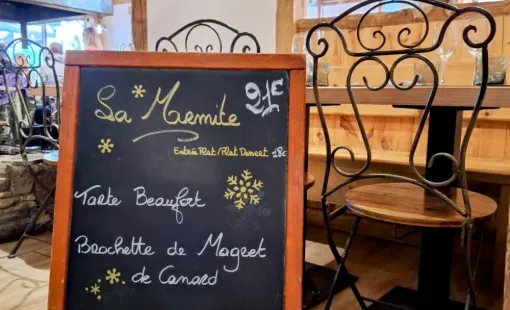 La Marmite 21€
Entrée Plat / Plat Dessert 18€
Tarte Beaufort
Brochette de Magret
de Canard